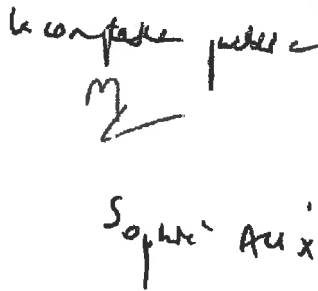 le comptable public
Sophie Alix